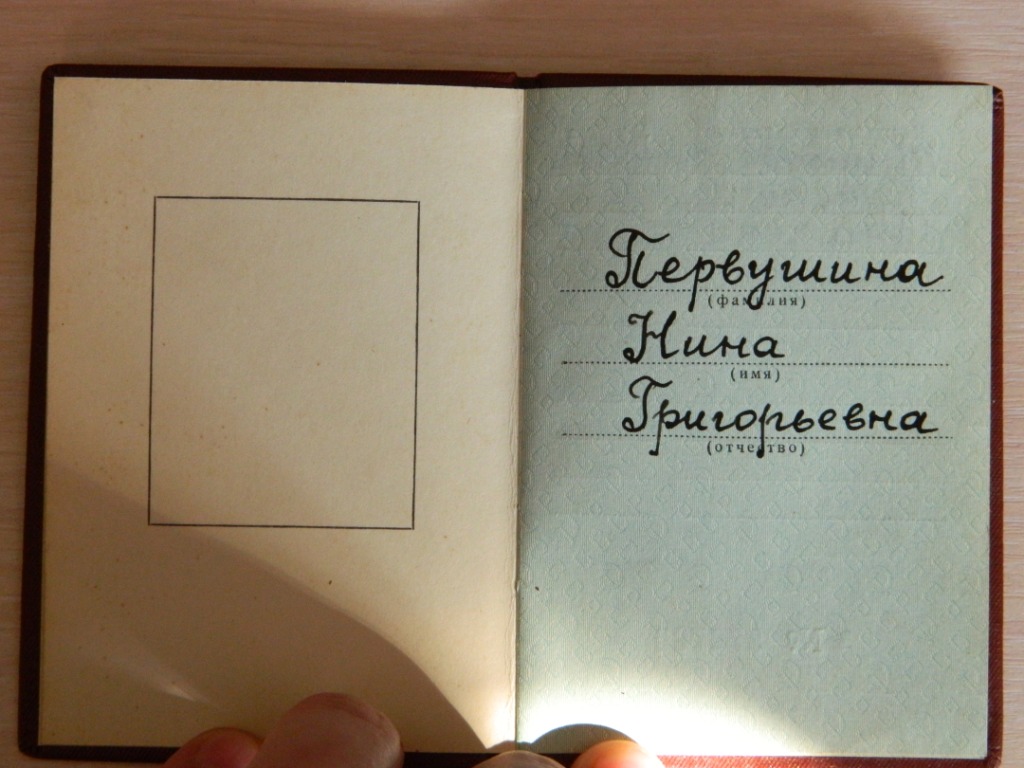 Первушина
(фамилия)
Нина
(имя)
Григорьевна
(отчество)